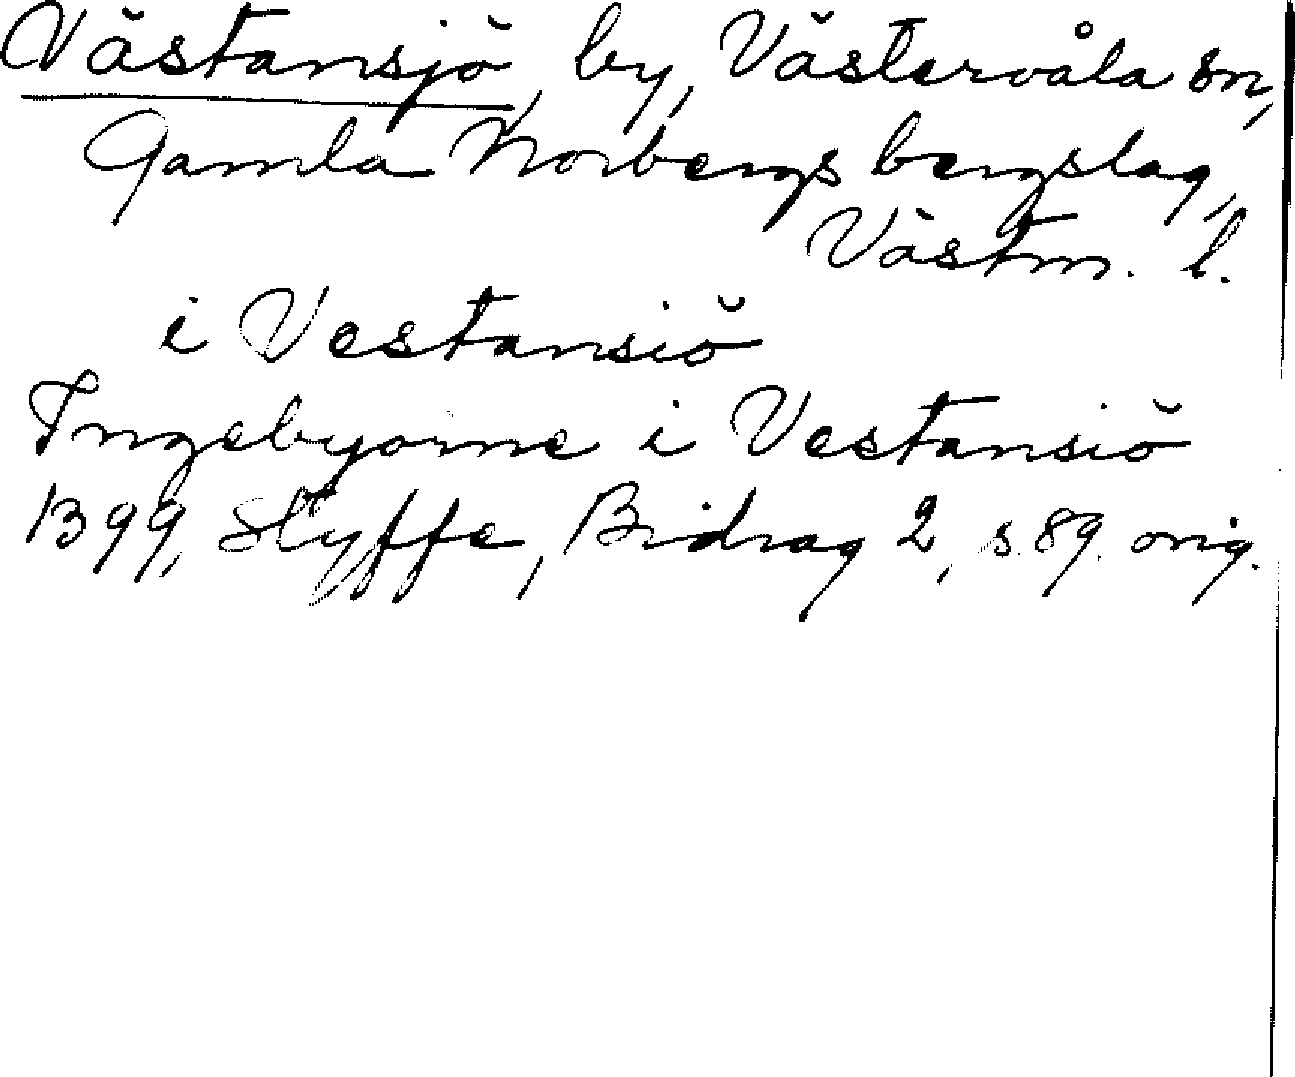 Västansjö, by, Västervåla sn,
Gamla Norbergs bergslag,
Västm. l.
i Vestansiö
Ingebyorne i Vestansiö
1399, Styffe, Bidrag 2, s. 89. orig.